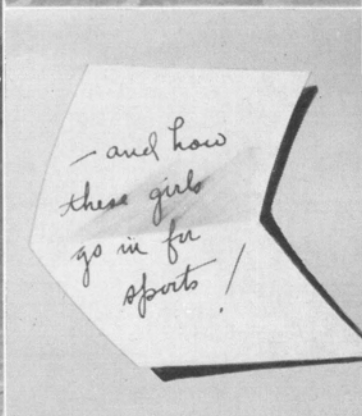 — and how
these girls
go in for
sports!